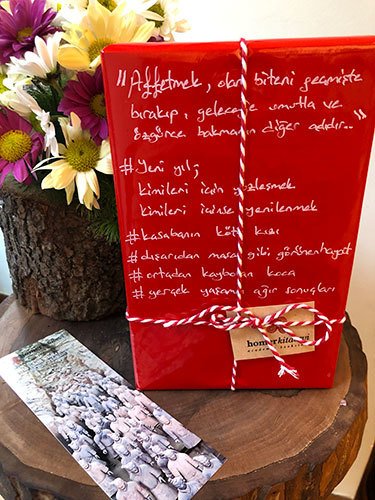 "Affetmek, olan biteni geçmişte
bırakıp, geleceğe umutla ve
özgürce bakmanın diğer adıdır.."
#Yeni yıl;
kimileri için yüzleşmek
kimileri içinse yenilenmek
#kasabanın kötü kızı
#dışarıdan masal gibi görünen hayat
#ortadan kaybolan koca
#gerçek yaşamın ağır sonuçları
homerkitabevi